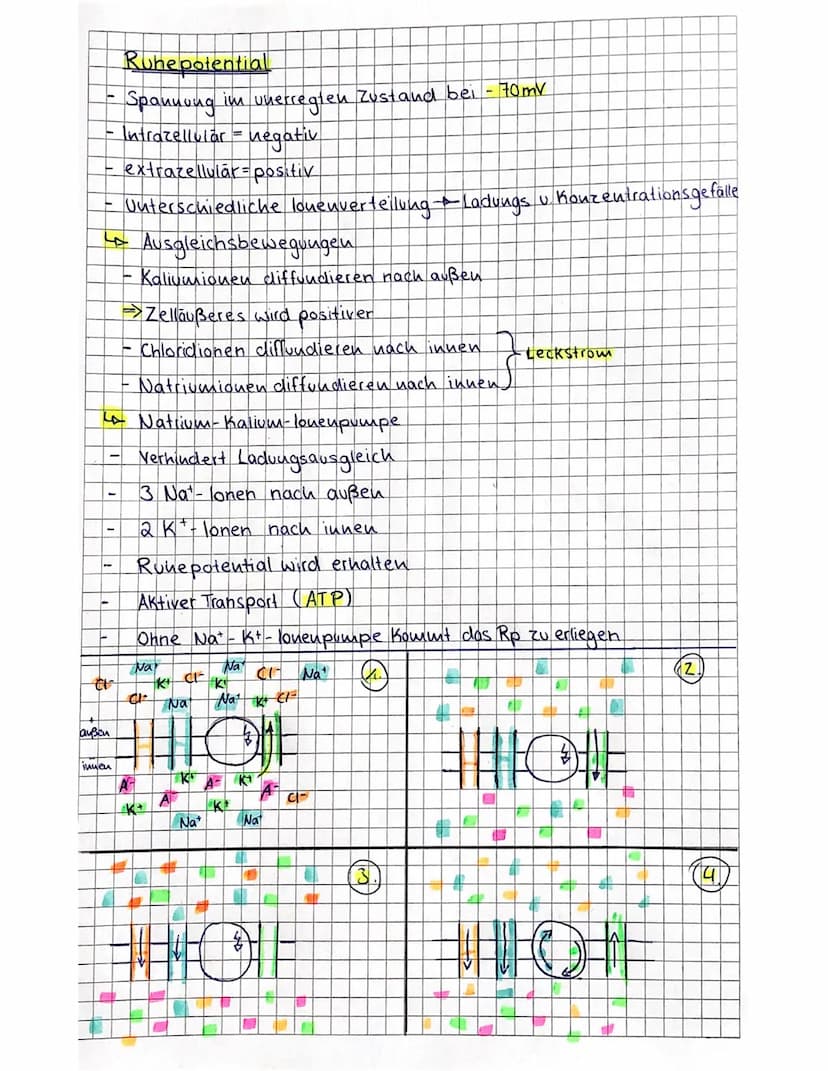 Ruhepotential
- Spannung im unerregten Zustand bei - 70mV
- Intrazellulär = negativ
- extrazellulär = positiv
- Unterschiedliche Ionenverteilung → Ladungs u. Konzentrationsgefälle
↳ Ausgleichsbewegungen
- Kaliumionen diffundieren nach außen
⇒ Zelläußeres wird positiver
- Chloridionen diffundieren nach innen
- Natriumionen diffundieren nach innen
Leckstrom
↳ Natrium-Kalium-Ionenpumpe
- Verhindert Ladungsausgleich
- 3 Na⁺-Ionen nach außen
- 2 K⁺-Ionen nach innen
- Ruhepotential wird erhalten
- Aktiver Transport (ATP)
- Ohne Na⁺-K⁺-Ionenpumpe kommt das Rp zu erliegen
Na⁺ Na⁺
Cl⁻ K⁺ Cl⁻ K⁺ Cl⁻ Na⁺ 1.
Cl⁻ Na⁺ Na⁺ K⁺ Cl⁻
+
außen
innen
A⁻ K⁺ A⁻ K⁺
K⁺ A⁻ K⁺ A⁻ Cl⁻
Na⁺ Na⁺
2.
3.
4.